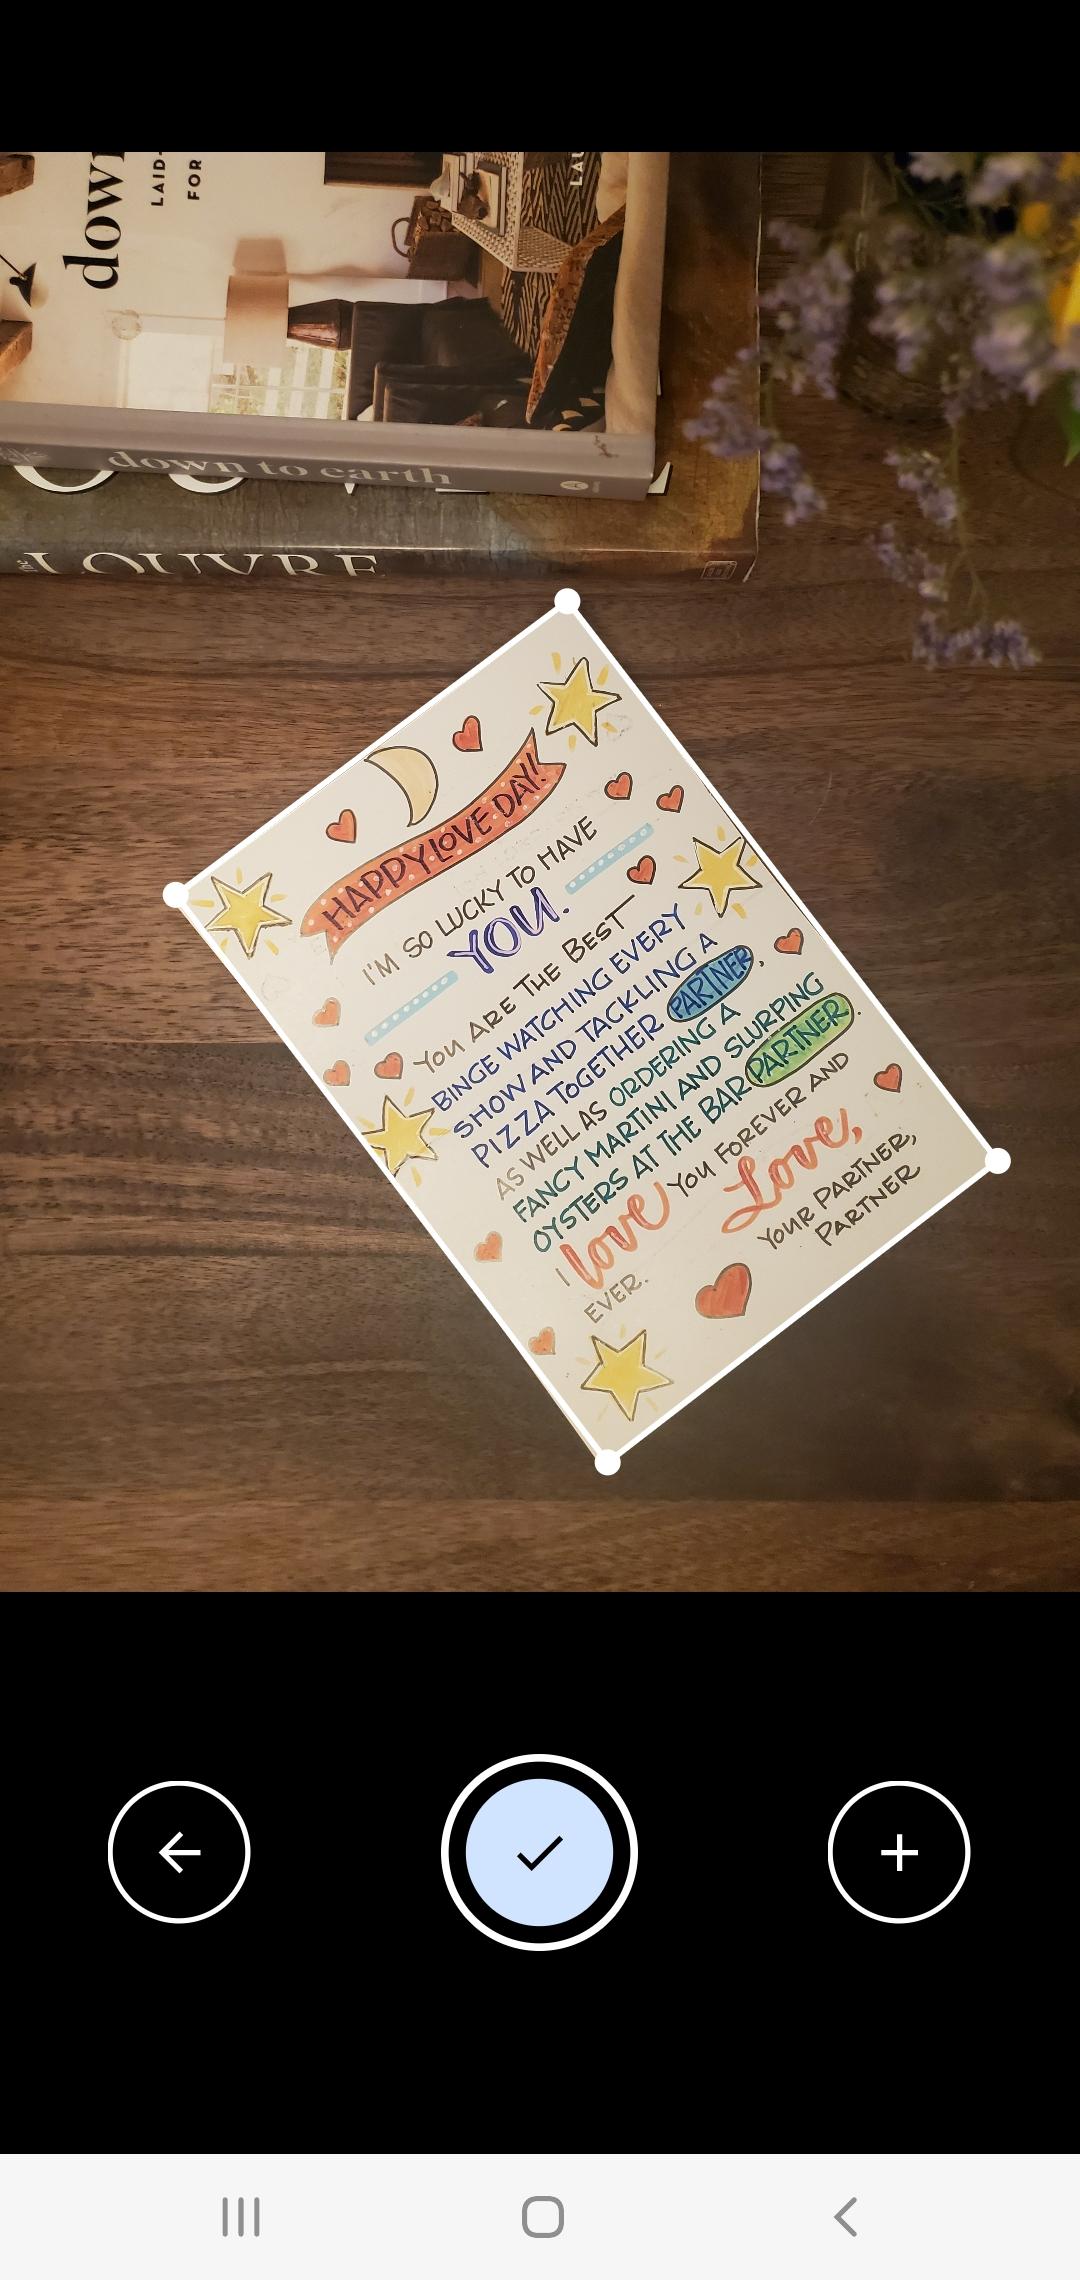 down
LAID-
FOR
LAU
down to earth
THE LOUVRE
HAPPY LOVE DAY!
I'M SO LUCKY TO HAVE
YOU.
YOU ARE THE BEST
BINGE WATCHING EVERY
SHOW AND TACKLING A
PIZZA TOGETHER PARTNER,
AS WELL AS ORDERING A
FANCY MARTINI AND SLURPING
OYSTERS AT THE BAR PARTNER.
I love YOU FOREVER AND
EVER.
Love,
YOUR PARTNER,
PARTNER